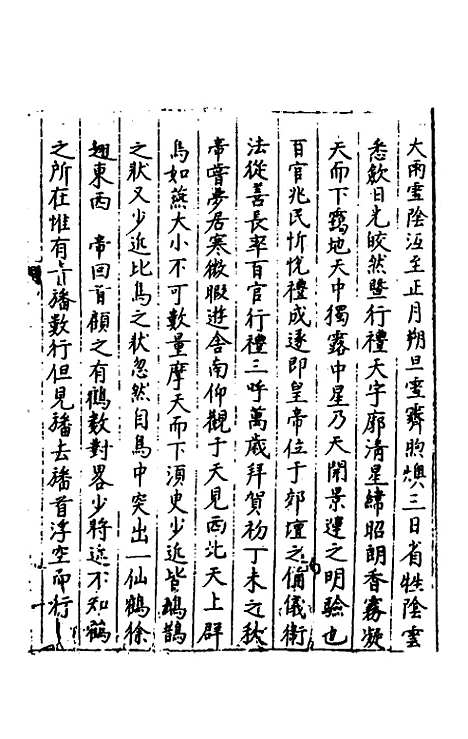 大雨雪陰沍至正月朔旦雪霽煦燠三日省牲陰雲
悉歛日光皎然暨行禮天宇廓清星緯昭朗香霧凝
天而下靄地天中獨露中星乃天開景運之明驗也
百官兆民忻悅禮成遂即皇帝位于郊壇之備儀衛
法從善長率百官行禮三呼萬歲拜賀初丁未之秋
帝嘗夢居寒微暇遊舍南仰觀于天見西北天上群
鳥如燕大小不可數量摩天而下須史少近皆鷴鵲
之狀又少近比鳥之狀忽然自鳥中突出一仙鶴徐
翅東西 帝回首顧之有鶴數對畧少將近不知鶴
之所在惟有旛數行但見旛去旛首浮空而行